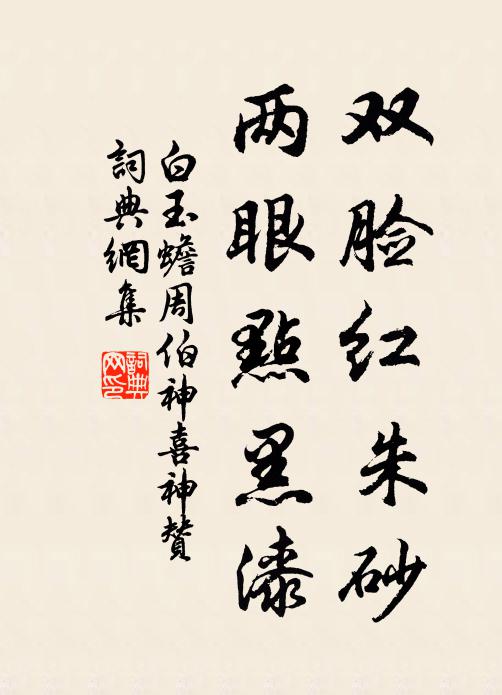 双脸红朱砂
两眼點黑漆
白玉蟾周伯神喜神赞
詞典網集
詞典網印